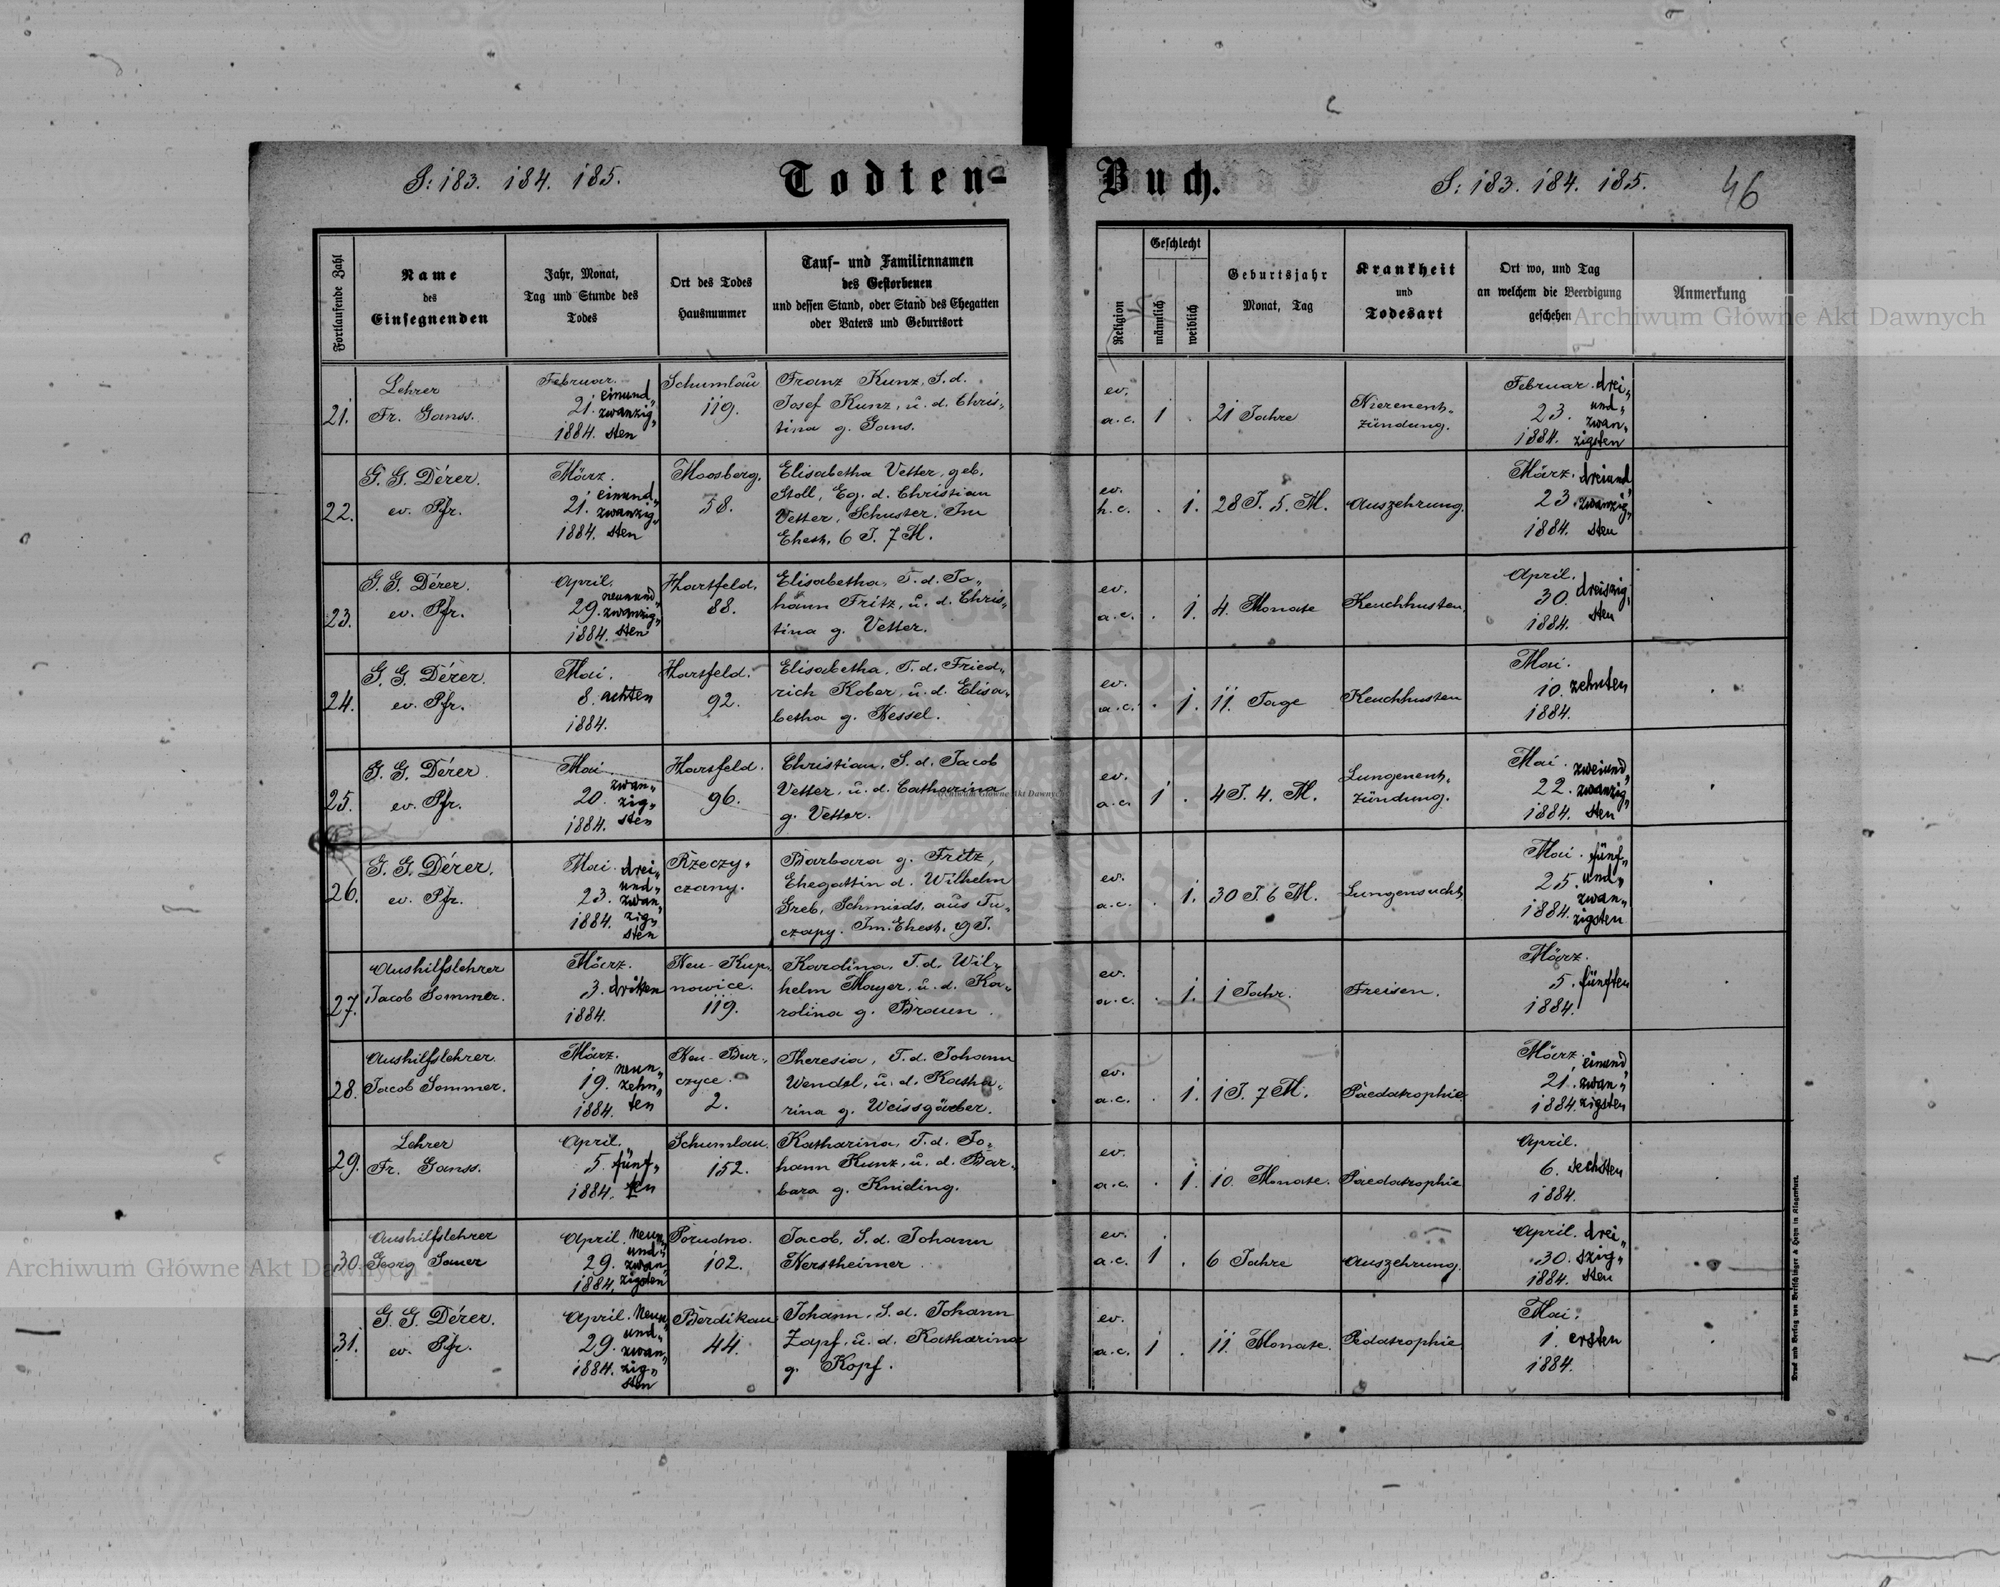 S: 183. 184. 185.
Todten-
Buch.
S: 183. 184. 185.
46
Fortlaufende Zahl
Name
des
Einsegnenden
Jahr, Monat,
Tag und Stunde des
Todes
Ort des Todes
Hausnummer
Tauf- und Familiennamen
des Gestorbenen
und dessen Stand, oder Stand des Ehegatten
oder Vaters und Geburtsort
Religion
Geschlecht
männlich
weiblich
Geburtsjahr
Monat, Tag
Krankheit
und
Todesart
Ort wo, und Tag
an welchem die Beerdigung
geschehen
Anmerkung
Archiwum Główne Akt Dawnych
21.
Lehrer
Fr. Ganss.
Februar.
21. einund„
zwanzig„
1884. sten
Schumlau
119.
Franz Kunz, S. d.
Josef Kunz, u. d. Chris„
tina g. Gans.
ev.
a. c.
1
.
21 Jahre
Nierenent„
zündung.
Februar. drei„
23. und„
zwan„
1884. zigsten
22.
G. G. Dérer.
ev. Pfr.
März.
21. einund„
zwanzig„
1884. sten
Moosberg.
38.
Elisabetha Vetter, geb.
Stoll, Eg. d. Christian
Vetter, Schuster. Im
Ehest. 6 J. 7 M.
ev.
h. c.
.
1.
28 J. 5. M.
Auszehrung.
März. dreiund„
23 zwanzig„
1884. sten
23.
G. G. Dérer.
ev. Pfr.
April.
29. neunund„
zwanzig„
1884. sten
Hartfeld.
88.
Elisabetha, T. d. Jo„
hann Fritz, u. d. Chris„
tina g. Vetter.
ev.
a. c.
.
1.
4. Monate
Keuchhusten.
April.
30. dreiszig„
1884. sten
24.
G. G. Dérer.
ev. Pfr.
Mai.
8. achten
1884.
Hartfeld.
92.
Elisabetha, T. d. Fried„
rich Kober, u. d. Elisa„
betha g. Kessel.
ev.
a. c.
.
1.
11. Tage
Keuchhusten
Mai.
10. zehnten
1884.
25.
G. G. Dérer.
ev. Pfr.
Mai.
20. zwan„
zig„
1884. sten
Hartfeld.
96.
Christian, S. d. Jacob
Vetter, u. d. Catharina
g. Vetter.
Archiwum Główne Akt Dawnych
ev.
a. c.
1
.
4 J. 4. M.
Lungenent„
zündung.
Mai. zweiund„
22. zwanzig„
1884. sten
26.
G. G. Dérer.
ev. Pfr.
Mai. drei„
und„
23. zwan„
1884. zig„
sten
Rzeczy„
czany.
Barbara g. Fritz,
Ehegattin d. Wilhelm
Greb, Schmieds, aus Tu„
czapy. Im. Ehest. 9 J.
ev.
a. c.
.
1.
30 J. 6 M.
Lungensucht
Mai. fünf„
25. und„
zwan„
1884. zigsten
27.
Aushilfslehrer
Jacob Sommer.
März.
3. dritten
1884.
Neu-Kup„
nowice.
119.
Kardina, T. d. Wil„
helm Mayer, u. d. Ka„
rolina g. Braun.
ev.
a. c.
.
1.
1 Jahr.
Freisen.
März.
5. fünften
1884.
28.
Aushilfslehrer
Jacob Sommer.
März.
19. neun„
zehn„
1884. ten
Neu-Bur„
czyce.
2.
Theresia, T. d. Johann
Wendel, u. d. Katha„
rina g. Weissgärber.
ev.
a. c.
.
1.
1 J. 7 M.
Paedatrophie
März. einund„
21. zwan„
1884. zigsten
29.
Lehrer
Fr. Ganss.
April.
5. fünf„
1884. ten
Schumlau.
152.
Katharina, T. d. Jo„
hann Kunz, u. d. Bar„
bara g. Kniding.
ev.
a. c.
.
1.
10. Monate.
Paedatrophie
April.
6. sechsten
1884.
30.
Aushilfslehrer
Georg Sauer
April. neun„
und„
29. zwan„
1884. zigsten
Porudno.
102.
Jacob, S. d. Johann
Kerstheimer
ev.
a. c.
1
.
6 Jahre
Auszehrung.
April. drei„
30. szig„
1884. sten
Archiwum Główne Akt Dawnych
31.
G. G. Dérer.
ev. Pfr.
April. neun„
und„
29. zwan„
1884. zig„
sten
Berdikau
44.
Johann, S. d. Johann
Zapf, u. d. Katharina
g. Kopf.
ev.
a. c.
1
.
11. Monate.
Pädatrophie
Mai.
1. ersten
1884.